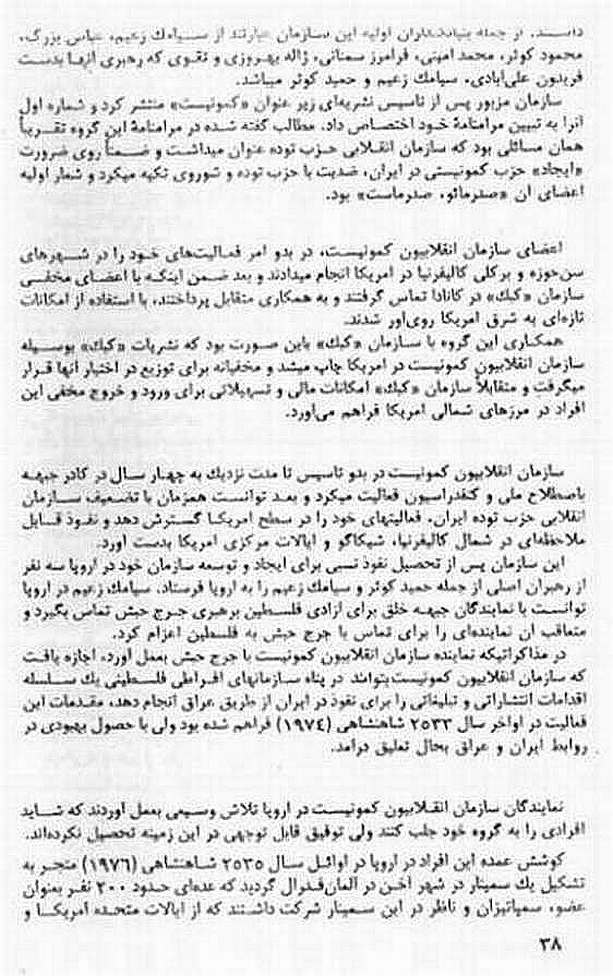 داشتند. از جمله بنیادگذاران اولیه این سازمان عبارتند از سیامك زعیم، عباس بزرگ،
محمود کوثر، محمد امینی، فرامرز سمنانی، ژاله بهروزی و تقوی که رهبری آنها بدست
فریدون علی‌آبادی، سیامك زعیم و حمید کوثر میباشد.
سازمان مزبور پس از تاسیس نشریه‌ای زیر عنوان «کمونیست» منتشر کرد و شماره اول
آنرا به تبیین مرامنامهٔ خود اختصاص داد. مطالب گفته شده در مرامنامهٔ این گروه تقریباً
همان مسائلی بود که سازمان انقلابی حزب توده عنوان میداشت و ضمناً روی ضرورت
«ایجاد» حزب کمونیستی در ایران، ضدیت با حزب توده و شوروی تکیه میکرد و شعار اولیه
اعضای ان «صدرمائو، صدرماست» بود.
اعضای سازمان انقلابیون کمونیست، در بدو امر فعالیت‌های خود را در شهرهای
سن‌حوزه و برکلی کالیفرنیا در امریکا انجام میدادند و بعد ضمن اینکه با اعضای مخفی
سازمان «کبك» در کانادا تماس گرفتند و به همکاری متقابل پرداختند، با استفاده از امکانات
تازه‌ای به شرق امریکا روی‌اور شدند.
همکاری این گروه با سازمان «کبك» باین صورت بود که نشریات «کبك» بوسیله
سازمان انقلابیون کمونیست در امریکا چاپ میشد و مخفیانه برای توزیع در اختیار آنها قرار
میگرفت و متقابلاً سازمان «کبك» امکانات مالی و تسهیلاتی برای ورود و خروج مخفی این
افراد در مرزهای شمالی امریکا فراهم می‌اورد.
سازمان انقلابیون کمونیست در بدو تاسیس تا مدت نزدیك به چهار سال در کادر جبهه
باصطلاح ملی و کنفدراسیون فعالیت میکرد و بعد توانست همزمان با تضعیف سازمان
انقلابی حزب توده ایران، فعالیتهای خود را در سطح امریکا گسترش دهد و نفوذ قابل
ملاحظه‌ای در شمال کالیفرنیا، شیکاگو و ایالات مرکزی امریکا بدست اورد.
این سازمان پس از تحصیل نفوذ نسبی برای ایجاد و توسعه سازمان خود در اروپا سه نفر
از رهبران اصلی از جمله حمید کوثر و سیامك زعیم را به اروپا فرستاد. سیامك زعیم در اروپا
توانست با نمایندگان جبهه خلق برای ازادی فلسطین برهبری جرج حبش تماس بگیرد و
متعاقب ان نماینده‌ای را برای تماس با جرج حبش به فلسطین اعزام کرد.
در مذاکراتیکه نماینده سازمان انقلابیون کمونیست با جرج حبش بعمل اورد، اجازه یافت
که سازمان انقلابیون کمونیست بتواند در پناه سازمانهای افراطی فلسطینی یك سلسله
اقدامات انتشاراتی و تبلیغاتی را برای نفوذ در ایران از طریق عراق انجام دهد، مقدمات این
فعالیت در اواخر سال ۲۵۳۳ شاهنشاهی (۱۹۷٤) فراهم شده بود ولی با حصول بهبودی در
روابط ایران و عراق بحال تعلیق درامد.
نمایندگان سازمان انقلابیون کمونیست در اروپا تلاش وسیعی بعمل اوردند که شاید
افرادی را به گروه خود جلب کنند ولی توفیق قابل توجهی در این زمینه تحصیل نکرده‌اند.
کوشش عمده این افراد در اروپا در اوائل سال ۲۵۳۵ شاهنشاهی (۱۹۷٦) منجر به
تشکیل یك سمینار در شهر آخن در آلمان‌فدرال گردید که عده‌ای حدود ۲۰۰ نفر بعنوان
عضو، سمپاتیزان و ناظر در این سمینار شرکت داشتند که از ایالات متحده امریکا و
۳۸